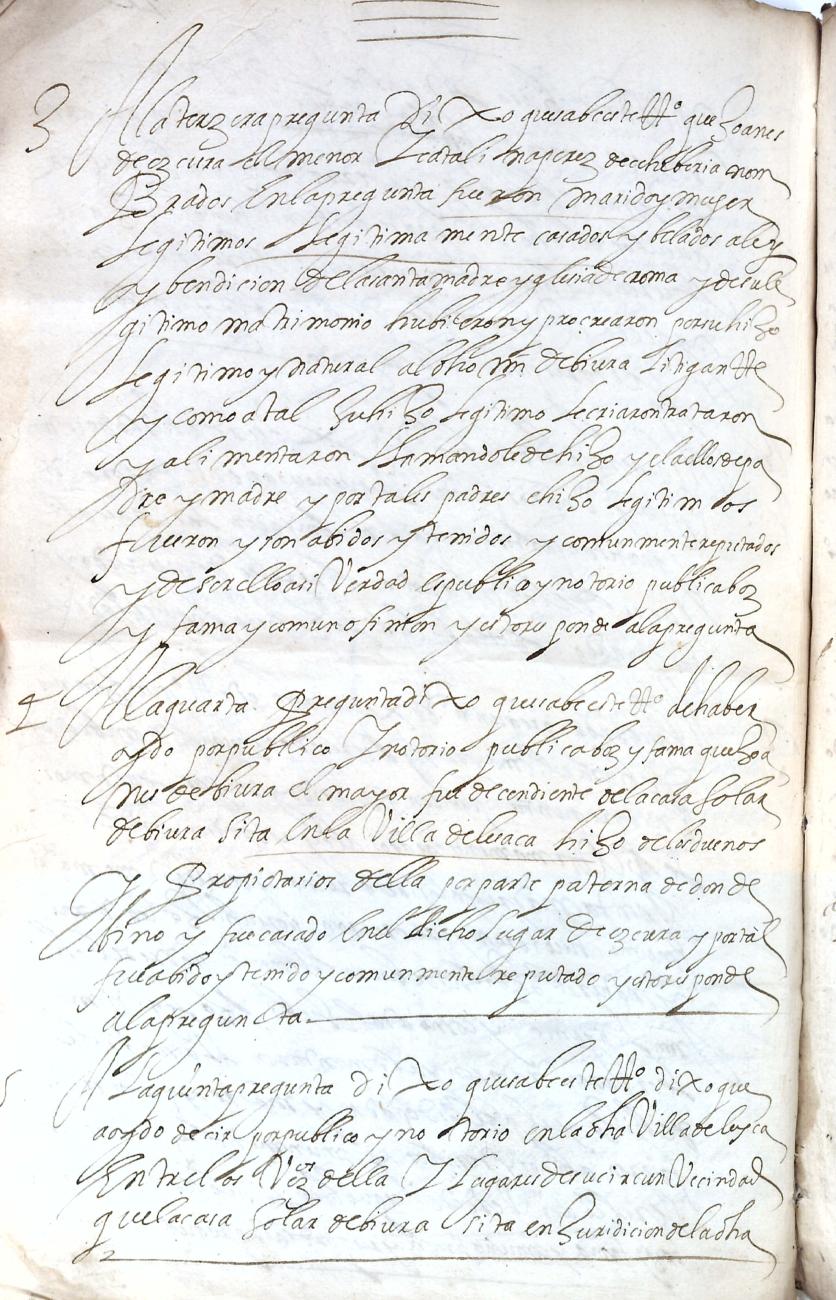 3 A la terzera pregunta Di Xo que sabe este tt.º que Joanes
de ezcura el menor y catali na perez de echeberia nom
Brados en la pregunta fueron marido y muger
Legitimos y Legitima mente casados y belados a ley
y bendicion de la santa madre yglesia de roma y de su le
gitimo matrimonio hubieron y procrearon por su hiJo
Legitimo y natural al dho mn de biura Litigan tte
y como a tal Su hiJo Legitimo le criaron trataron
y ali mentaron llamandole de hiJo y el a ellos de pa
dre y madre y por tales padres e hiJo Legitim os
fueron y son abidos y tenidos y comunmente reputados
y de ser ello asi Verdad es publico y notorio publica boz
y fama y comun o finion y esto res ponde a la pregunta
4 A la quarta Pregunta di Xo que sabe este tt.º de haber
oydo por publlico y notorio publica boz y fama que Joa
nes de biura el mayor fue decendiente de la casa Solar
de biura Sita en la Villa de lesaca hiJo de los duenos
y Propietarios della por parte paterna de don de
bino y fue casado en el dicho Lugar de ezcura y por tal
fue abido y tenido y comunmente re putado y esto res ponde
a la pregun ta
5 A La quinta pregunta di Xo que sabe este tt.º di Xo que
a oydo decir por publico y no torio en la dha Villa de lesaca
Entre los Vezos della y Lugares de su circun Vecindad
que la casa Solar de biura Sita en Juridicion de la dha